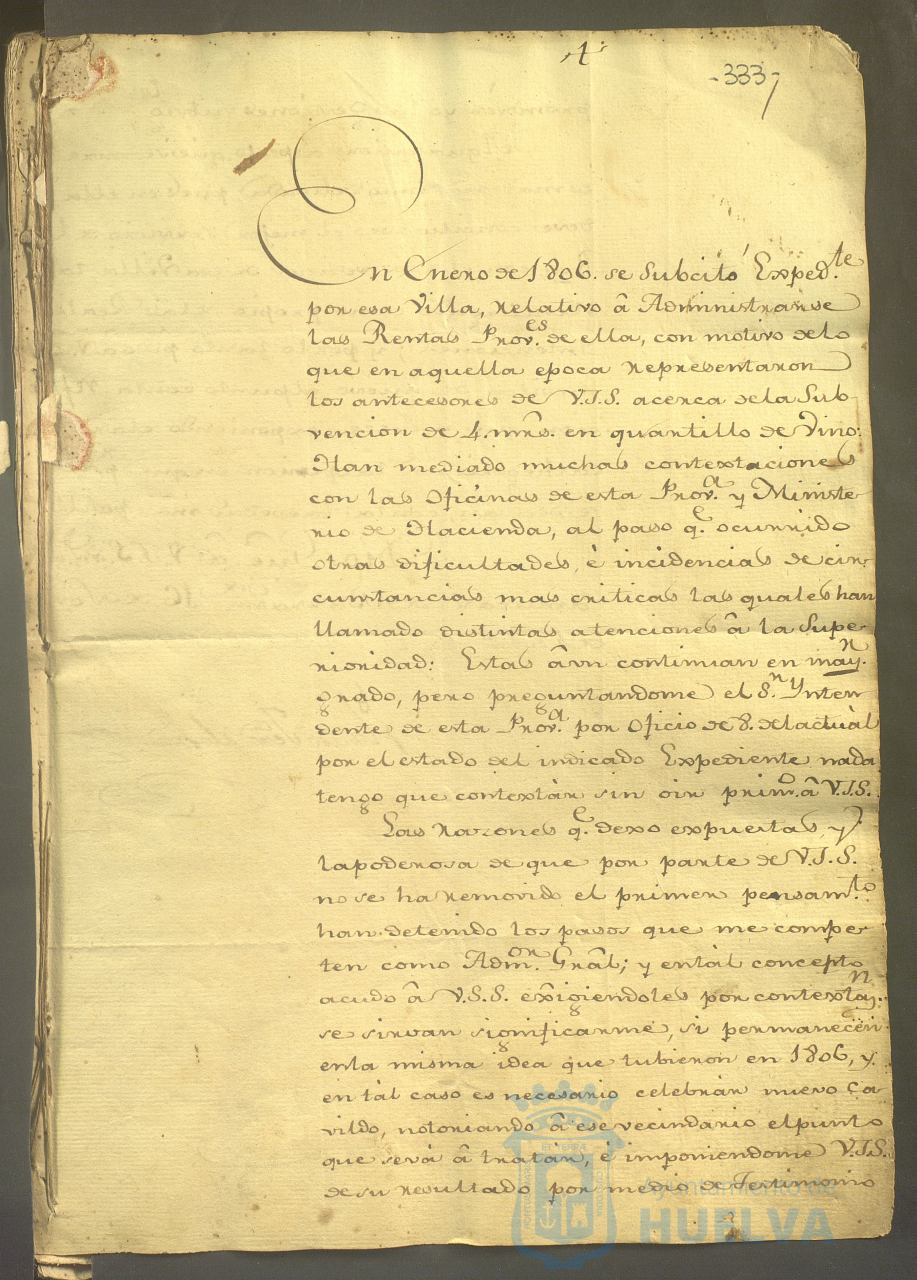 4
-333-
En Enero de 1806. se Subcitó Exped.te
por esa Villa, relativo â Administrarse
las Rentas Prov.es de ella, con motivo delo
que en aquella epoca representaron
los antecesores de V.S.S. acerca dela Sub-
vencion de 4. mrs. en quartillo de Vino:
Han mediado muchas contextaciones
con las Oficinas de esta Prov.a y Ministe-
rio de Hacienda, al paso q.e ocurrido
otras dificultades, é incidencias de cir-
cunstancias mas criticas las quales han
llamado distintas atenciones â la Supe-
rioridad: Estas âvn continuan en may.r
grado, pero preguntandome el S.r Ynten
dente de esta Prov.a por Oficio de 8. del actuàl
por el estado del indicado Expediente nada
tengo que contextàr sin oir prim.o â V.S.S.
Las razones q.e dexo expuestas, y
lapoderosa de que por parte de V.S.S.
no se ha removido el primer pensam.to
han detenido los pasos que me compe-
ten como Adm.or Grâl; y entàl concepto
acudo â V.S.S. exîgiendoles por contextaz.n
se sirvan significarme, si permanecen
enla misma idea que tubieron en 1806, y
en tàl caso es necesario celebràr nuevo Ca-
vildo, notoriando â ese vecindario elpunto
que serà â tratàr, é imponiendome V.S.S.
de su resultado por medio de Testimonio
Ayuntamiento de
HUELVA